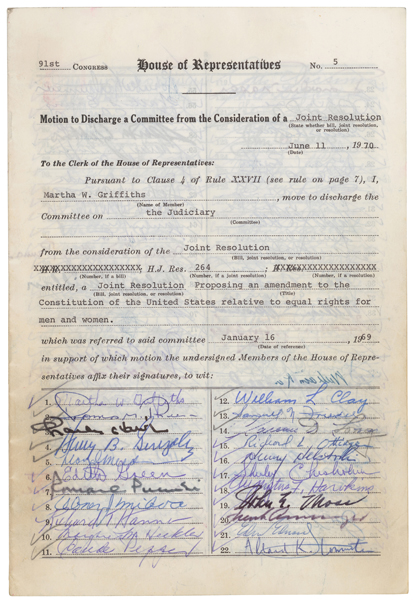 91st CONGRESS House of Representatives No. 5
Motion to Discharge a Committee from the Consideration of a Joint Resolution
(State whether bill, joint resolution,
or resolution)
June 11 , 1970
(Date)
To the Clerk of the House of Representatives:
Pursuant to Clause 4 of Rule XXVII (see rule on page 7), I,
Martha W. Griffiths , move to discharge the
(Name of Member)
Committee on the Judiciary
(Committee)
from the consideration of the Joint Resolution
(Bill, joint resolution, or resolution)
H.J. Res. 264 ;
(Number, if a bill) (Number, if a joint resolution) (Number, if a resolution)
entitled, a Joint Resolution Proposing an amendment to the
(Bill, joint resolution, or resolution) (Title)
Constitution of the United States relative to equal rights for
men and women.
which was referred to said committee January 16 , 1969
(Date of reference)
in support of which motion the undersigned Members of the House of Repre-
sentatives affix their signatures, to wit:
1. Martha W. Griffiths
2.
3.
4. Henry B. Gonzalez
5.
6. Edith Green
7. Roman C Pucinski
8.
9.
10.
11. Claude Pepper
12. William L. Clay
13.
14.
15. Richard L. Ottinger
16. Henry Helstoski
17. Shirley Chisholm
18. Augustus F. Hawkins
19. John E. Moss
20.
21.
22. Allard K. Lowenstein